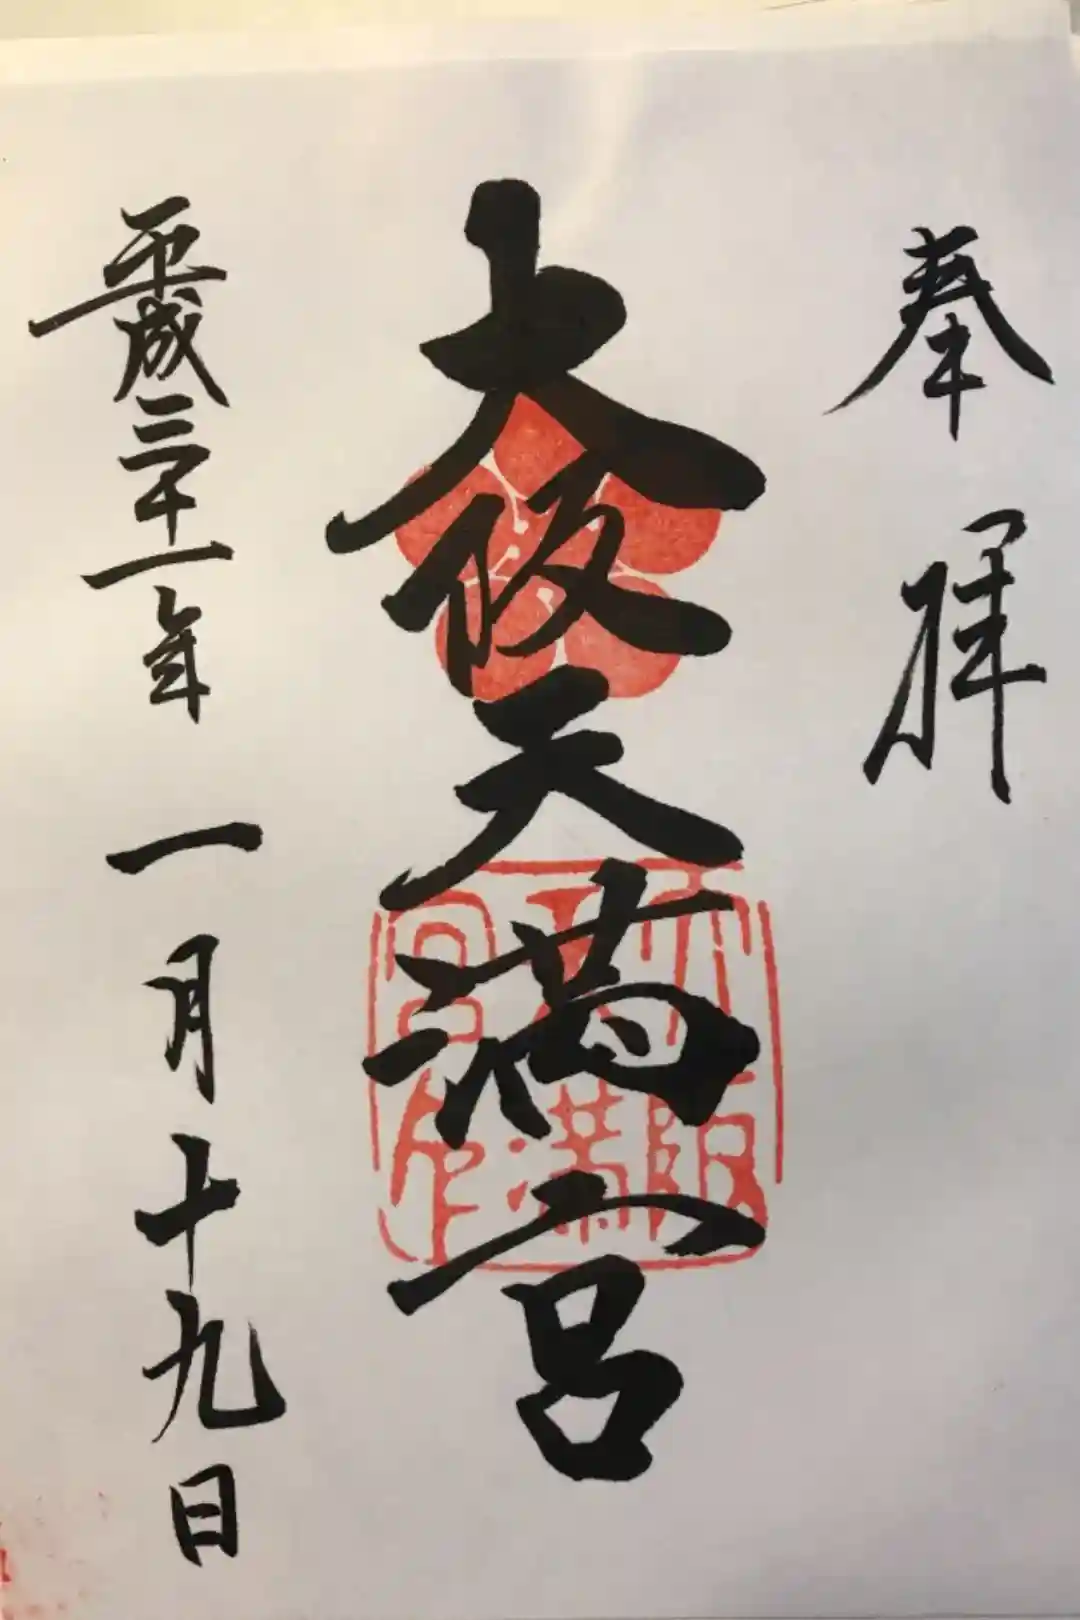 奉拝
大阪天満宮
大阪天満宮印
平成三十一年 一月十九日